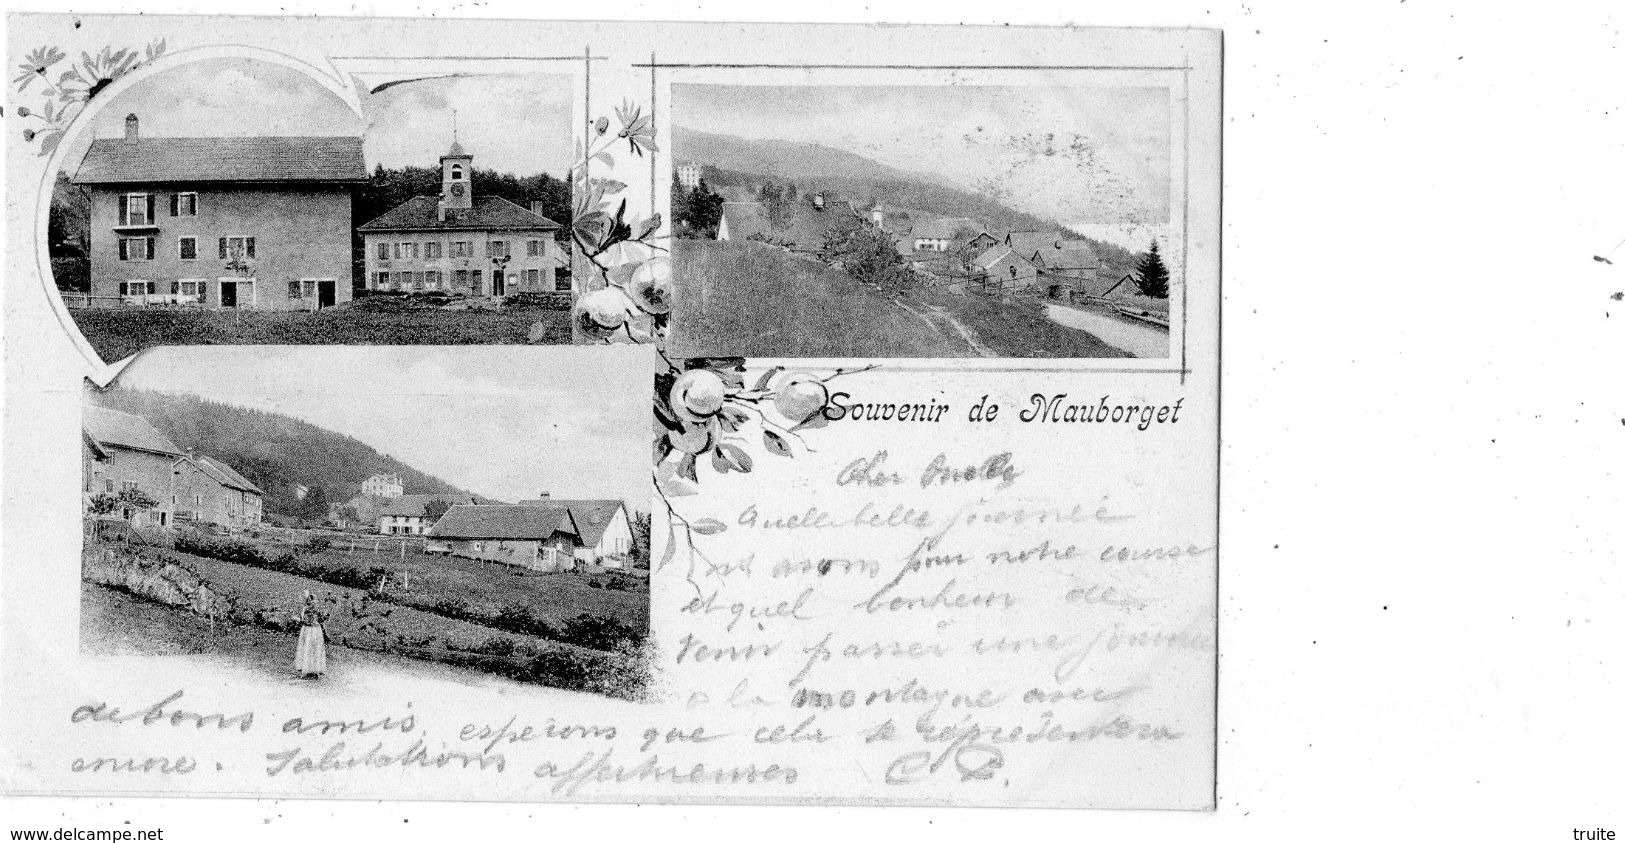 Souvenir de Mauborget
Cher
Quelle belle journée
avons pour notre course
et quel bonheur de
venir passer une journée
a la montagne avec
de bons amis, espérons que cela se représentera
encore. Salutations affectueuses C D.
www.delcampe.net
truite